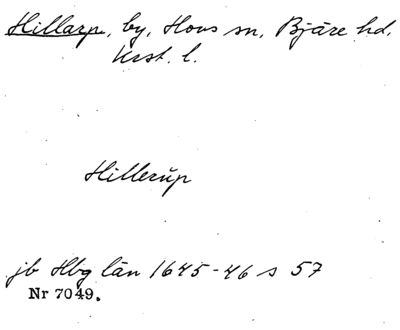 Hillarp, by, Hovs sn, Bjäre hd.
Krst. l.
Hillerŭp
jb Hbg län 1645-46 s 57
Nr 7049.